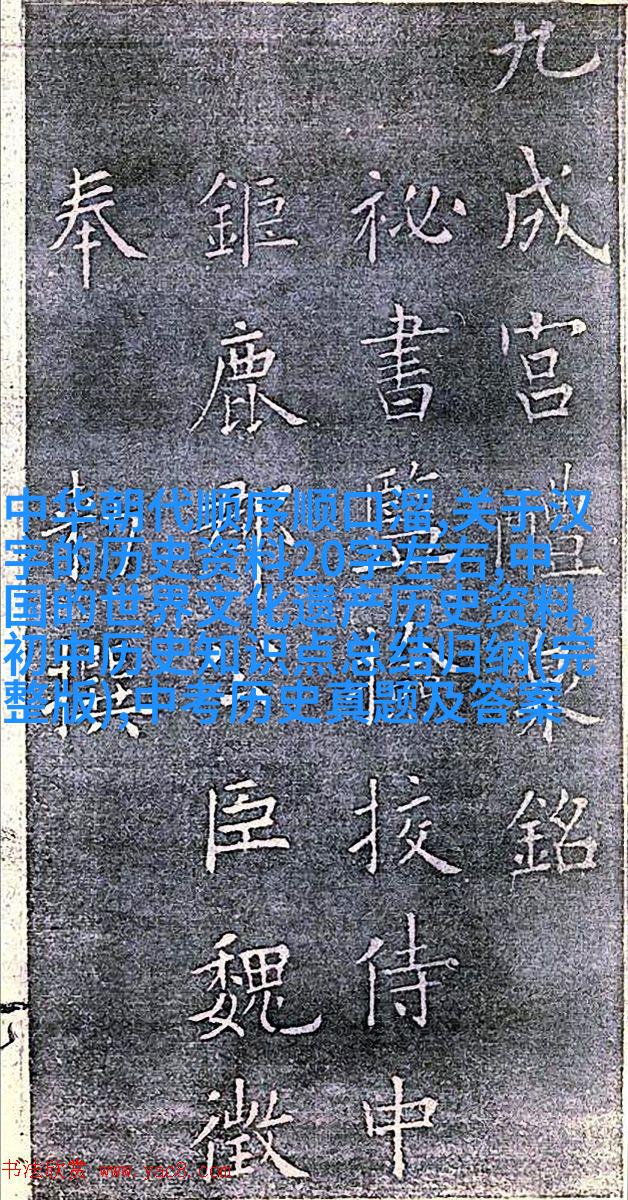 九成宮醴泉銘
祕書監檢挍侍中
鉅鹿郡公臣魏徵
奉勑撰
中华朝代顺序顺口溜,关于汉
字的历史资料20字左右,中
国的世界文化遗产历史资料,
初中历史知识点总结归纳(完
整版),中考历史真题及答案
书法欣赏 www.yac8.com